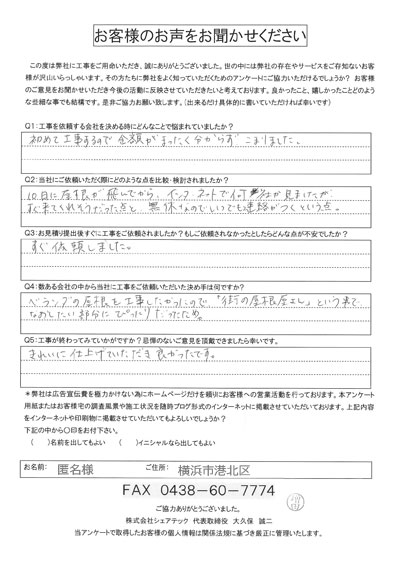 お客様のお声をお聞かせください
この度は弊社に工事をご用命いただき、誠にありがとうございました。世の中には弊社の存在やサービスをご存知ないお客
様が沢山いらっしゃいます。その方たちに弊社をよく知っていただくためのアンケートにご協力いただけるでしょうか? お客様
のご意見をお聞かせいただき今後の活動に反映させていただきたいと考えております。良かったこと、嬉しかったことどのよう
な些細な事でも結構です。是非ご協力お願い致します。(出来るだけ具体的に書いていただければ幸いです)
Q1:工事を依頼する会社を決める時にどんなことで悩まれていましたか?
初めて工事するので金額がまったく分からず こまりました。
Q2:当社にご依頼いただく際にどのような点を比較・検討されましたか?
10日に屋根が飛んでから、インターネットで何社か見ましたが
すぐ来てくれそうだった点と、無休なのでいつでも連絡がつくという点。
Q3:お見積り提出後すぐに工事をご依頼されましたか?もしご依頼されなかったとしたらどんな点が不安でしたか?
すぐ依頼しました。
Q4:数ある会社の中から当社に工事をご依頼いただいた決め手は何ですか?
ベランダの屋根を工事したかったので「街の屋根屋さん」という名で
なおしたい部分にぴったりだったため。
Q5:工事が終わってみていかがですか?忌憚のないご意見を頂戴できましたら幸いです。
きれいに仕上げていただき良かったです。
*弊社は広告宣伝費を極力かけない為にホームページだけを頼りにお客様への営業活動を行っております。本アンケート
用紙またはお客様宅の調査風景や施工状況を随時ブログ形式のインターネットに掲載させていただいております。上記内容
をインターネットや印刷物に掲載させていただいてもよろしいでしょうか?
下記の中から〇印をお付下さい。
( )名前を出してもよい ( )イニシャルなら出してもよい
お名前: 匿名様 ご住所: 横浜市港北区
FAX 0438-60-7774
ご協力ありがとうございました。
株式会社シェアテック 代表取締役 大久保 誠二
当アンケートで取得したお客様の個人情報は関係法規に基づき厳正に管理いたします。